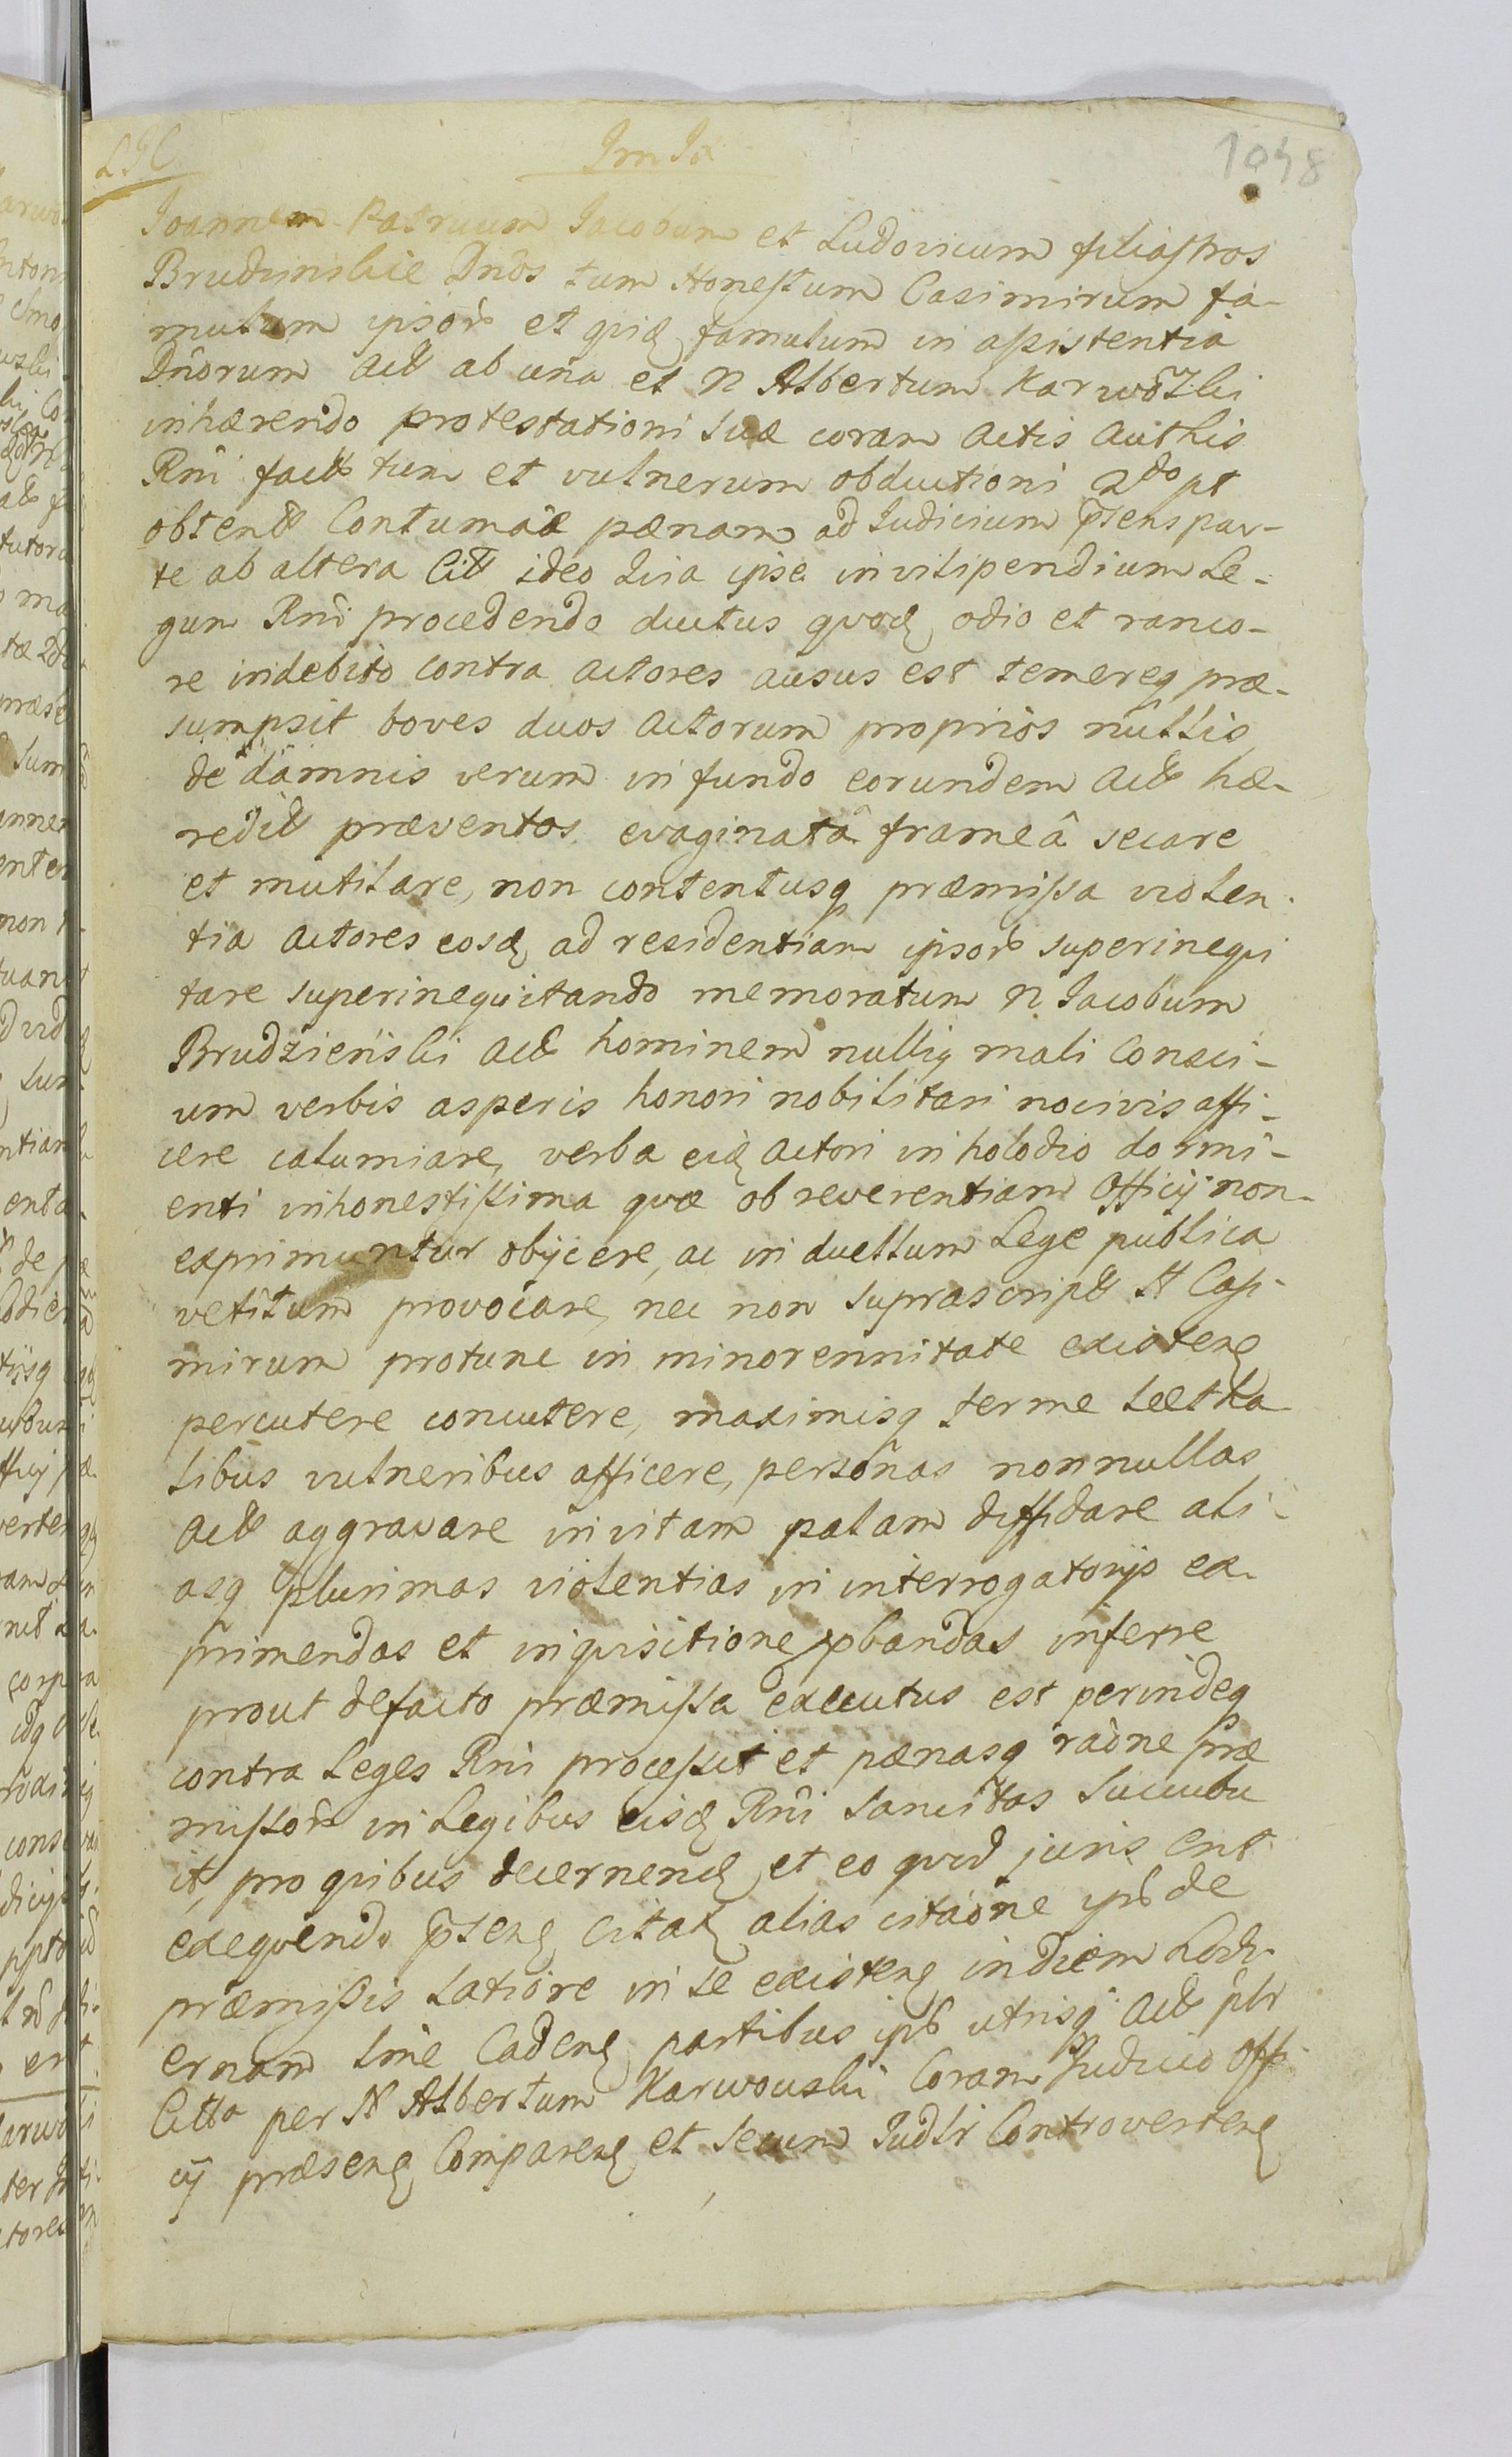 Im Ix
1048
Joannem Patruum Jacobum et Ludovicum filiastros
Brudzinskie Dnos tum Honestum Casimirum fa-
mulum ipsor et quid famulum in assistentia
Dnorum Act ab una et N Albertum Karwoski
inhærendo protestationi suæ coram Actis Authis
Rni fact tum et vulnerum obductioni 2do pt
obtent Contumaæ pænam ad Judicium pntens par-
te ab altera Citt ideo Quia ipse in vilipendium Le-
gum Rni procedendo ductus quod odio et ranco-
re indebito contra Actores ausus est temereq præ-
sumpsit boves duos Actorum proprios nullis
de damnis verum in fundo eorundem Act hæ-
redit præventos evaginatâ frameâ secare
et mutilare, non contentusq præmissa violen-
tia Actores eosd ad residentiam ipsor superinequi
tare superinequitando memoratum N Jacobum
Brudzieński Act hominem nulliq mali Consci-
um verbis asperis honori nobilitari nocivis affi-
cere calumiare, verba eid Actori in holodio dormi-
enti inhonestissima quæ ob reverentiam Officij non
exprimuntur obijcere, ac in duellum Lege publica
vetitum provocare, nec non suprascript H Casi-
mirum protunc in minorennitate existen
percutere concutere, maximisq ferme læetha
libus vulneribus afficere, personas nonnullas
Act aggravare in vitam palam diffidare ali-
asq plurimas violentias in interrogatorijs ex-
primendas et inquisitione pbandas inferre
prout defacto præmissa executus est perindeq
contra Leges Rni processit et pænasq raone præ
missor in Legibus eisd Rni sancitas succubu
it, pro quibus decernend et eo quid juris erit
exequendo pnten citat alias citaone ipsb de
præmissis latiore in se existen in diem hodi-
ernam sine Caden partibus ipsb utrisq Act pbr
Citto per N Albertum Karwouski Coram Judicio Offi
cij præsen Comparen et secum Judlr Controverten